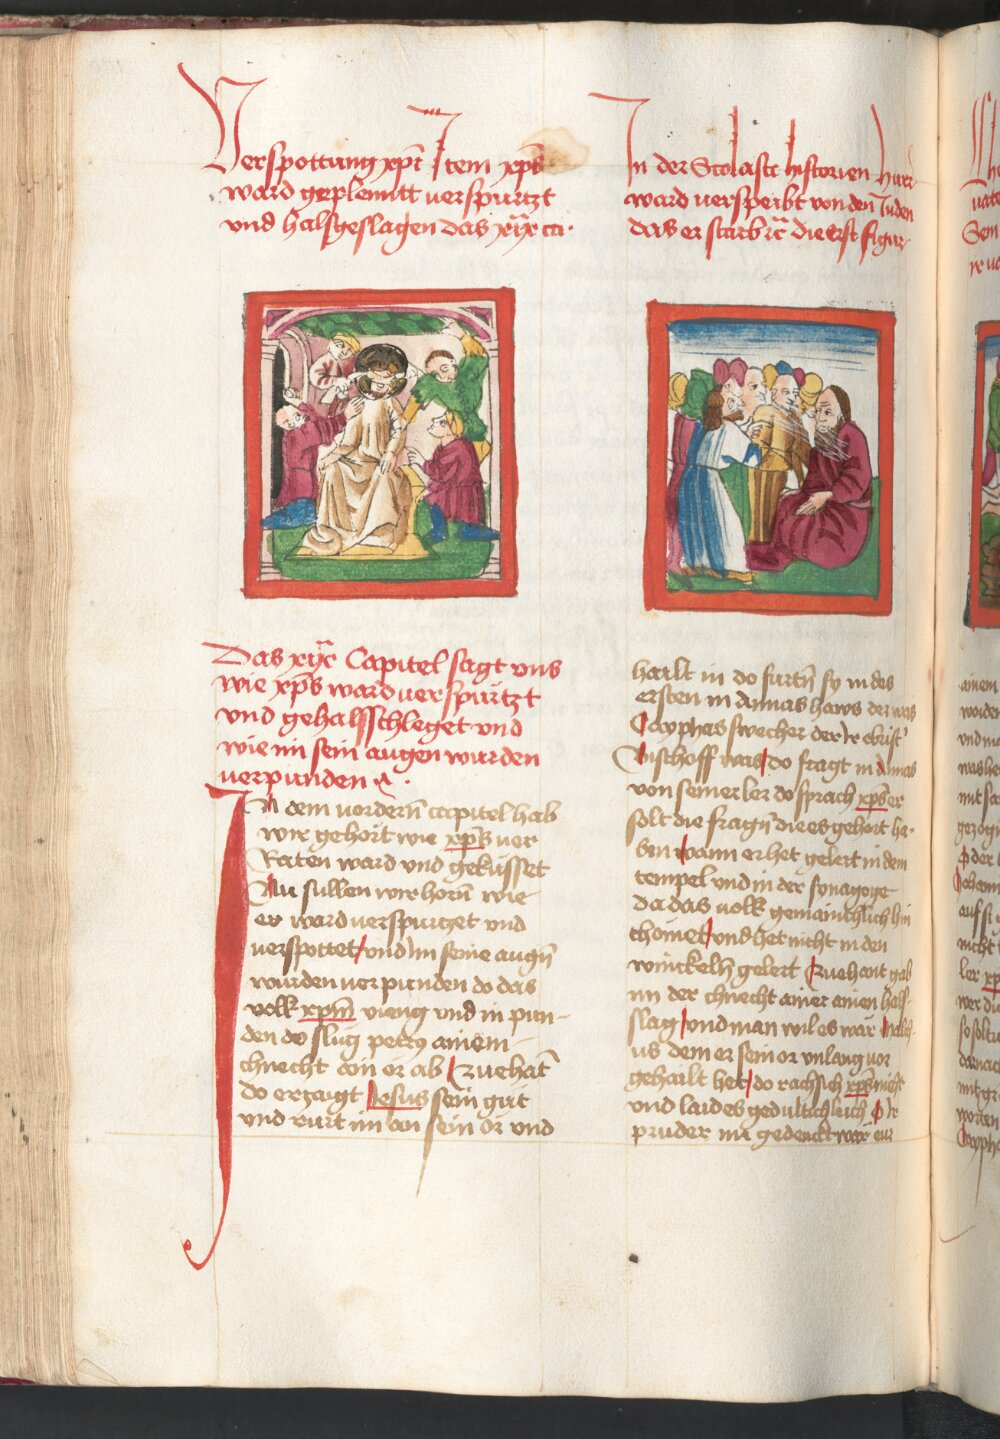 Verspottung xpi Item xps
ward geplenntt verspurtzt
und halsgeslagen das xix ca.
In der Scolastc historien hurr
ward verspeibt von den Juden
das er starb rc die erst figur
Das xix Capitel sagt uns
wie xps ward verspurtzt
und gehalsschleget und
wie im sein augen wurden
verpunden rc.
In dem vordern capitel hab
wir gehort wie xps ver
Raten ward und gekusset
Nu sullen wir horn wie
er ward verspurtzet und
verspottet und im seine augn
wurden verpunden do das
volk xpm vieng und in pun-
den do slug petrus ainem
chnecht ain or ab zuehat
do erzaigt Jesus sein gut
und rurt im an sein or und
hailt in do furtn sy in des
ersten in Annas haws der was
Cayphas swecher der ir
Bischoff was do fragt in Annas
von seiner ler do sprach xps er
solt die fragn die es gehort ha-
ben wann er het gelert in dem
tempel und in der synagoge
da das volk gemainchlich hin
chomet und het nicht in den
winckeln gelert Zuehant gab
im der chnecht ainer ainen hals-
slag und man wil es war Malch-
us dem er sein or unlang vor
gehailt het do rach sich xps nicht
und laid es gedultichleich O ir
pruder mi gedenckt war eur